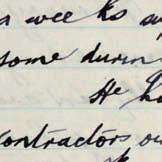 weeks
some durin
He h
contractors ou